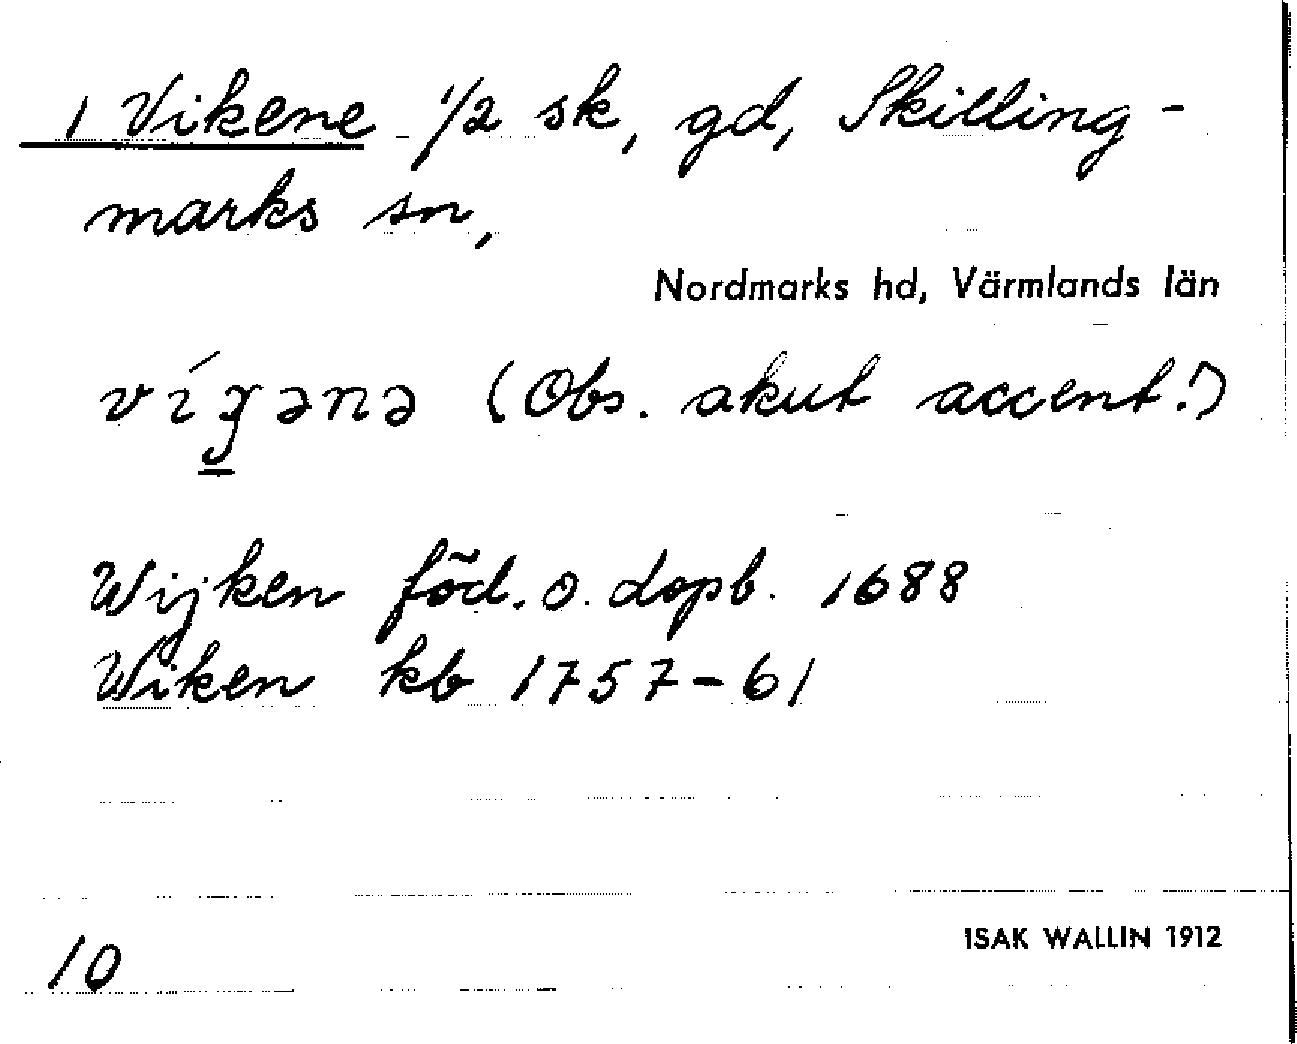 1 Vikene 1/2 sk, gd, Skilling-
marks sn,
Nordmarks hd, Värmlands län
víɡ̱ənə (Obs. akut accent!)
Wijken föd. o. dopb. 1688
Wiken kb 1757-61
10
ISAK WALLIN 1912